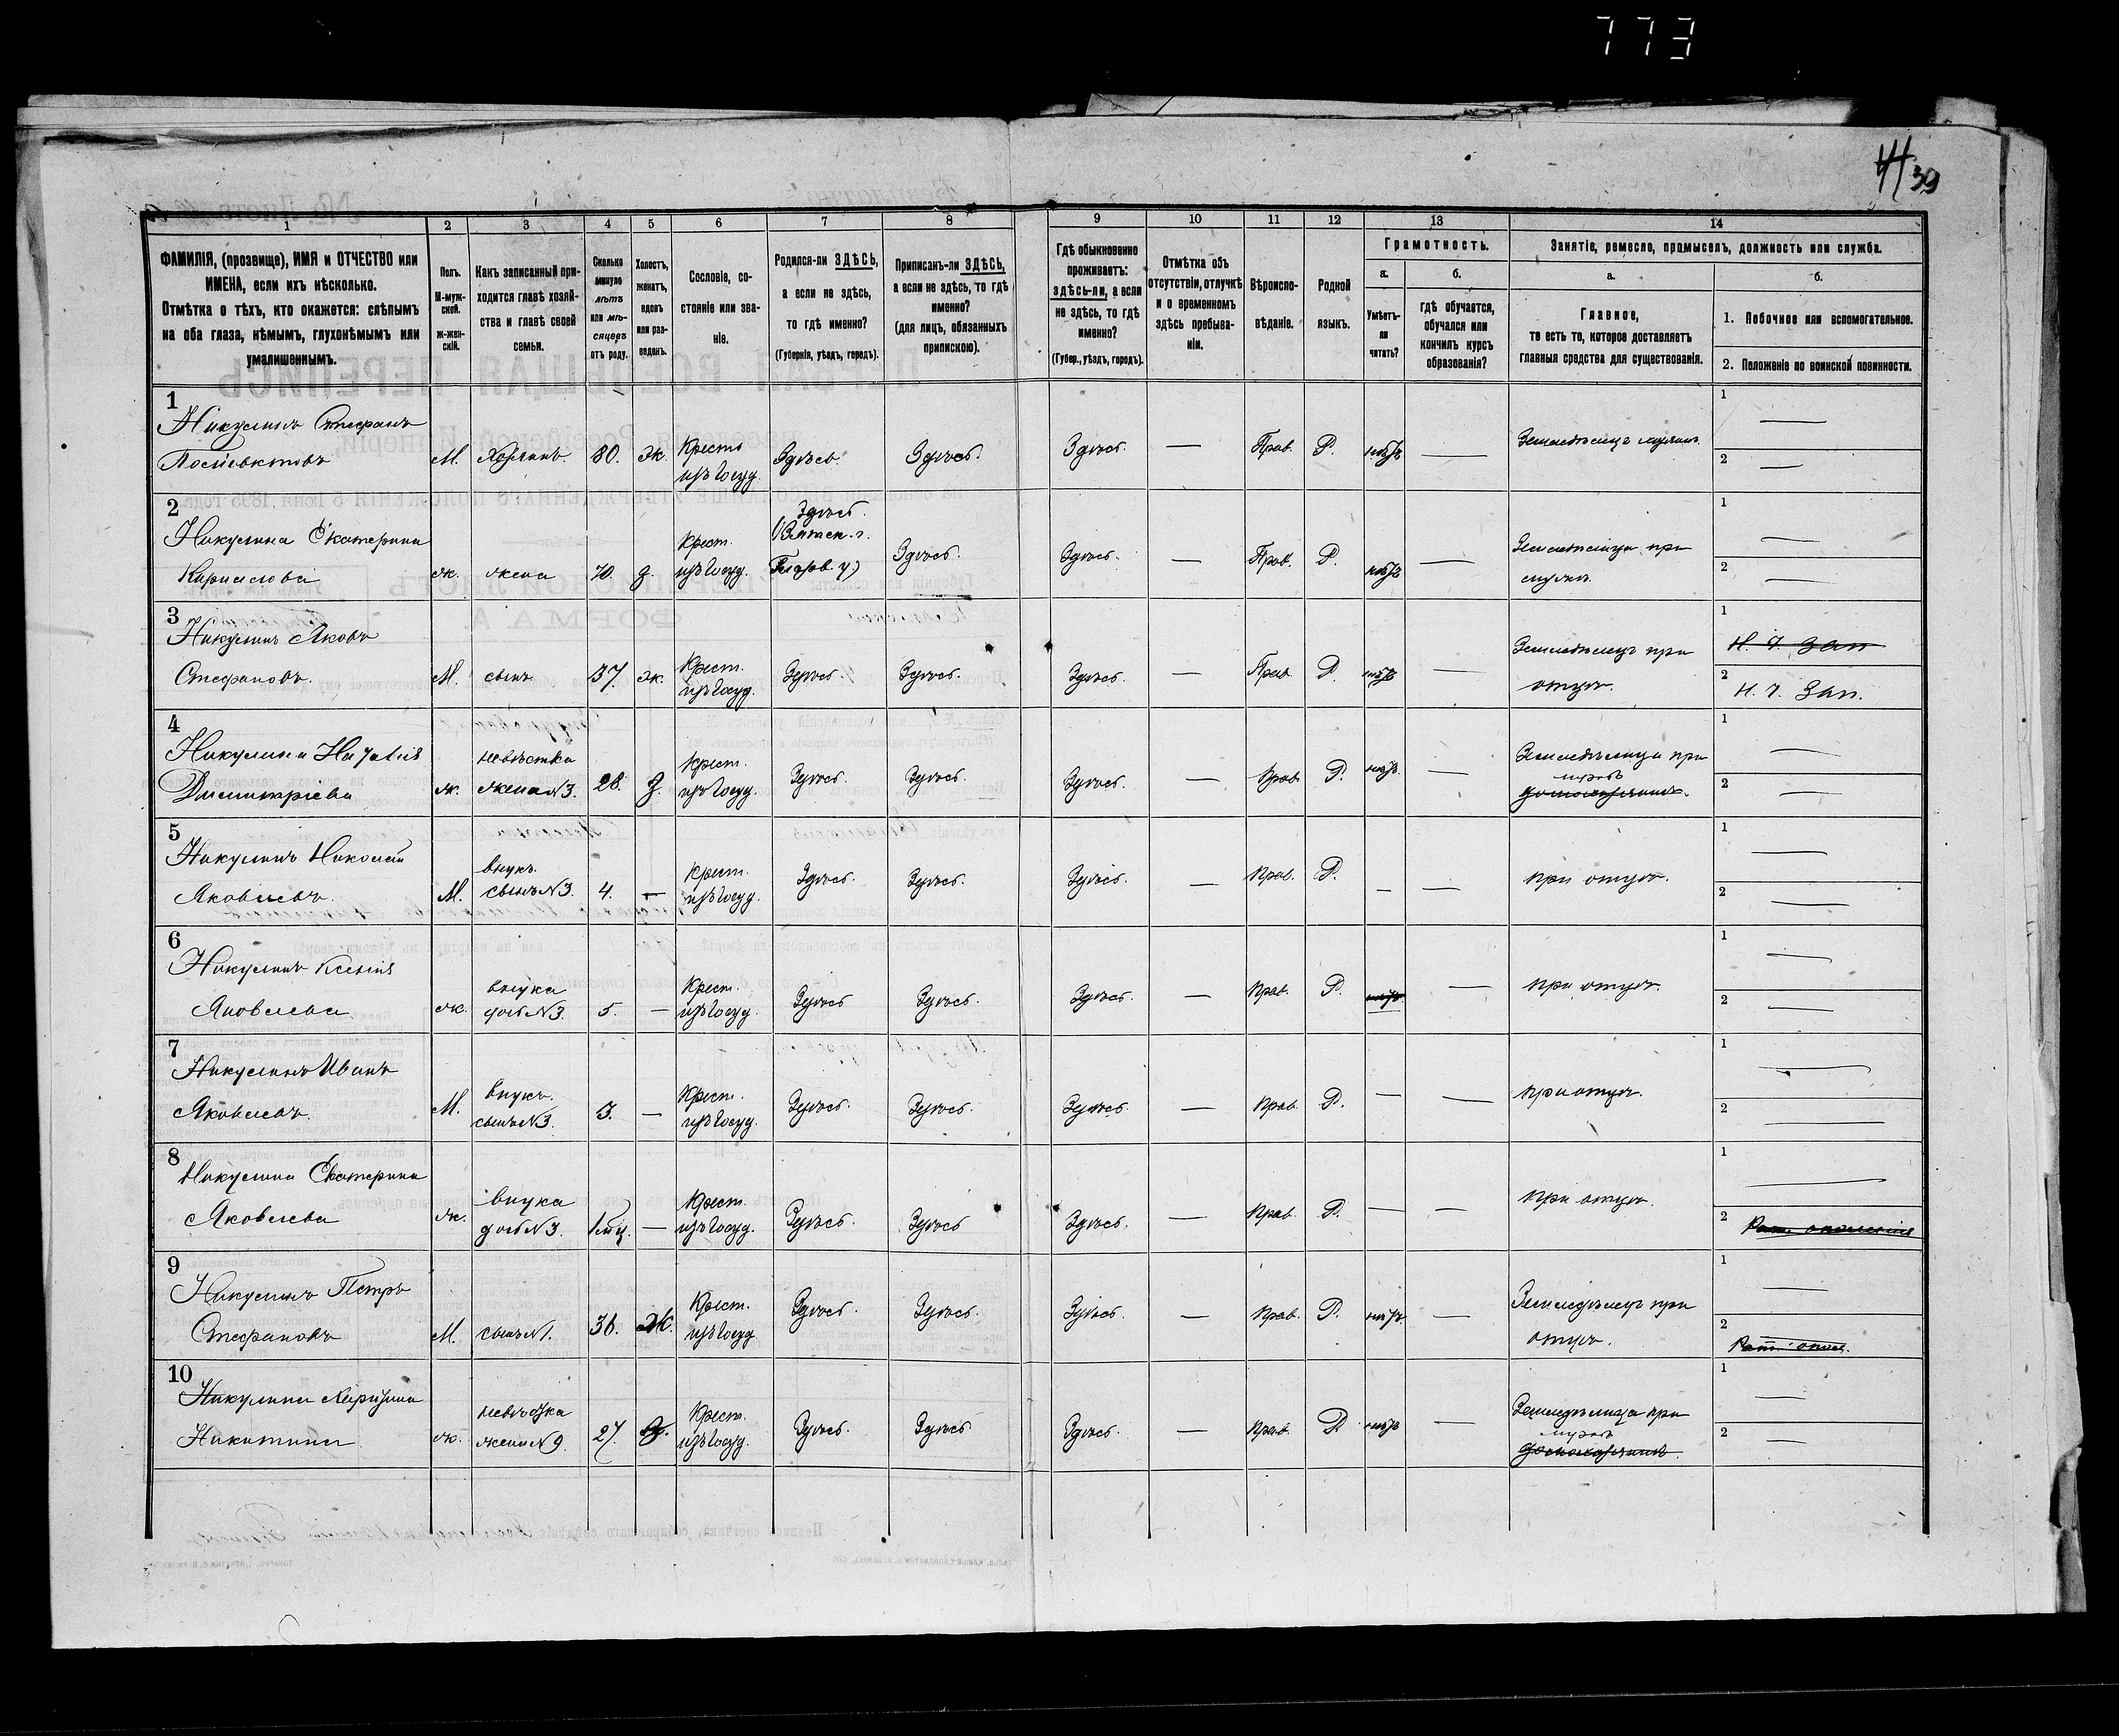 773
39
1
2
3
4
5
6
7
8
9
10
11
12
13
14
ФАМИЛІЯ, (прозвище), ИМЯ и ОТЧЕСТВО или
ИМЕНА, если ихъ нѣсколько.
Отмѣтка о тѣхъ, кто окажется: слѣпымъ
на оба глаза, нѣмымъ, глухонѣмымъ или
умалишеннымъ.
Полъ.
М-муж-
ской.
ж-жен-
скій.
Какъ записанный при-
ходится главѣ хозяй-
ства и главѣ своей
семьи.
Сколько
минуло
лѣтъ
или мѣ-
сяцевъ
отъ роду.
Холостъ,
женатъ,
вдовъ
или раз-
веденъ.
Сословіе, со-
стояніе или зва-
ніе.
Родился-ли ЗДѢСЬ,
а если не здѣсь,
то гдѣ именно?
(Губернія, уѣздъ, городъ).
Приписанъ-ли ЗДѢСЬ,
а если не здѣсь, то гдѣ
именно?
(для лицъ, обязанныхъ
припискою).
Гдѣ обыкновенно
проживаетъ:
здѣсь-ли, а если
не здѣсь, то гдѣ
именно?
(Губер., уѣздъ, городъ).
Отмѣтка объ
отсутствіи, отлучкѣ
и о временномъ
здѣсь пребыва-
ніи.
Вѣроиспо-
вѣданіе.
Родной
языкъ.
Грамотность.
а.
Умѣетъ-
ли
читать?
б.
гдѣ обучается,
обучался или
кончилъ курсъ
образованія?
Занятіе, ремесло, промыселъ, должность или служба.
а.
Главное,
то есть то, которое доставляетъ
главныя средства для существованія.
б.
1. Побочное или вспомогательное.
2. Положеніе по воинской повинности.
1
Никулинъ Стефанъ
М. Хозяинъ. 80. Ж. Крестъ
изъ госуд. Здѣсь. Здѣсь. Здѣсь. — Прав. Р. нѣтъ —
1 —
2 —
2
Никулина Екатерина
Кирилова ж. жена 70. З. Крест.
изъ госуд. Здѣсь.
(Вятск. г.
Глазов. у) Здѣсь. Здѣсь. — Прав. Р. нѣтъ
Земледѣлица при
мужѣ.
1 —
2 —
3
Никулинъ Яковъ
Стефановъ. М. сынъ 37. Ж. Крест.
изъ госуд. Здѣсь. Здѣсь. Здѣсь. — Прав. Р. нѣтъ —
Земледѣлецъ при
отцѣ.
1 Н. Ч. Зап
2 Н. Ч. Зап.
4
Никулина Наталія
Димитріева ж. невѣстка
жена №3. 28. З. Крест.
изъ госуд. Здѣсь. Здѣсь. Здѣсь. — Прав. Р. нѣтъ. —
Земледѣлица при
мужѣ
домохозяинѣ.
1 —
2 —
5
Никулинъ Николай
Яковлевъ. М. внукъ.
сынъ №3. 4. — Крест.
изъ госуд. Здѣсь. Здѣсь. Здѣсь. — Прав. Р. — —
При отцѣ.
1 —
2 —
6
Никулина Ксенія
Яковлева. ж. внука
дочь №3. 5. — Крест.
изъ госуд. Здѣсь Здѣсь. Здѣсь. — Прав. Р. нѣтъ. —
При отцѣ.
1 —
2 —
7
Никулинъ Иванъ
Яковлевъ. М. внукъ.
сынъ №3. 3. — Крест.
изъ госуд. Здѣсь. Здѣсь. Здѣсь. — Прав. Р. — —
При отцѣ.
1 —
2 —
8
Никулина Екатерина
Яковлева ж. внука
дочь №3. 1 мц. — Крест.
изъ госуд. Здѣсь. Здѣсь Здѣсь. — Прав. Р. — —
При отцѣ.
1 —
2 Рат. ополченія
9
Никулинъ Петръ
Стефановъ М. сынъ №1. 36. Ж. Крест.
изъ госуд. Здѣсь. Здѣсь. Здѣсь. — Прав. Р. нѣтъ. —
Земледѣлецъ при
отцѣ.
1 —
2 Рат. опол.
10
Никулина
Никитина ж. невѣстка
жена №9. 27. З. Крест.
изъ госуд. Здѣсь. Здѣсь Здѣсь. — Прав. Р. нѣтъ —
Земледѣлица при
мужѣ
домохозяинѣ.
1 —
2 —